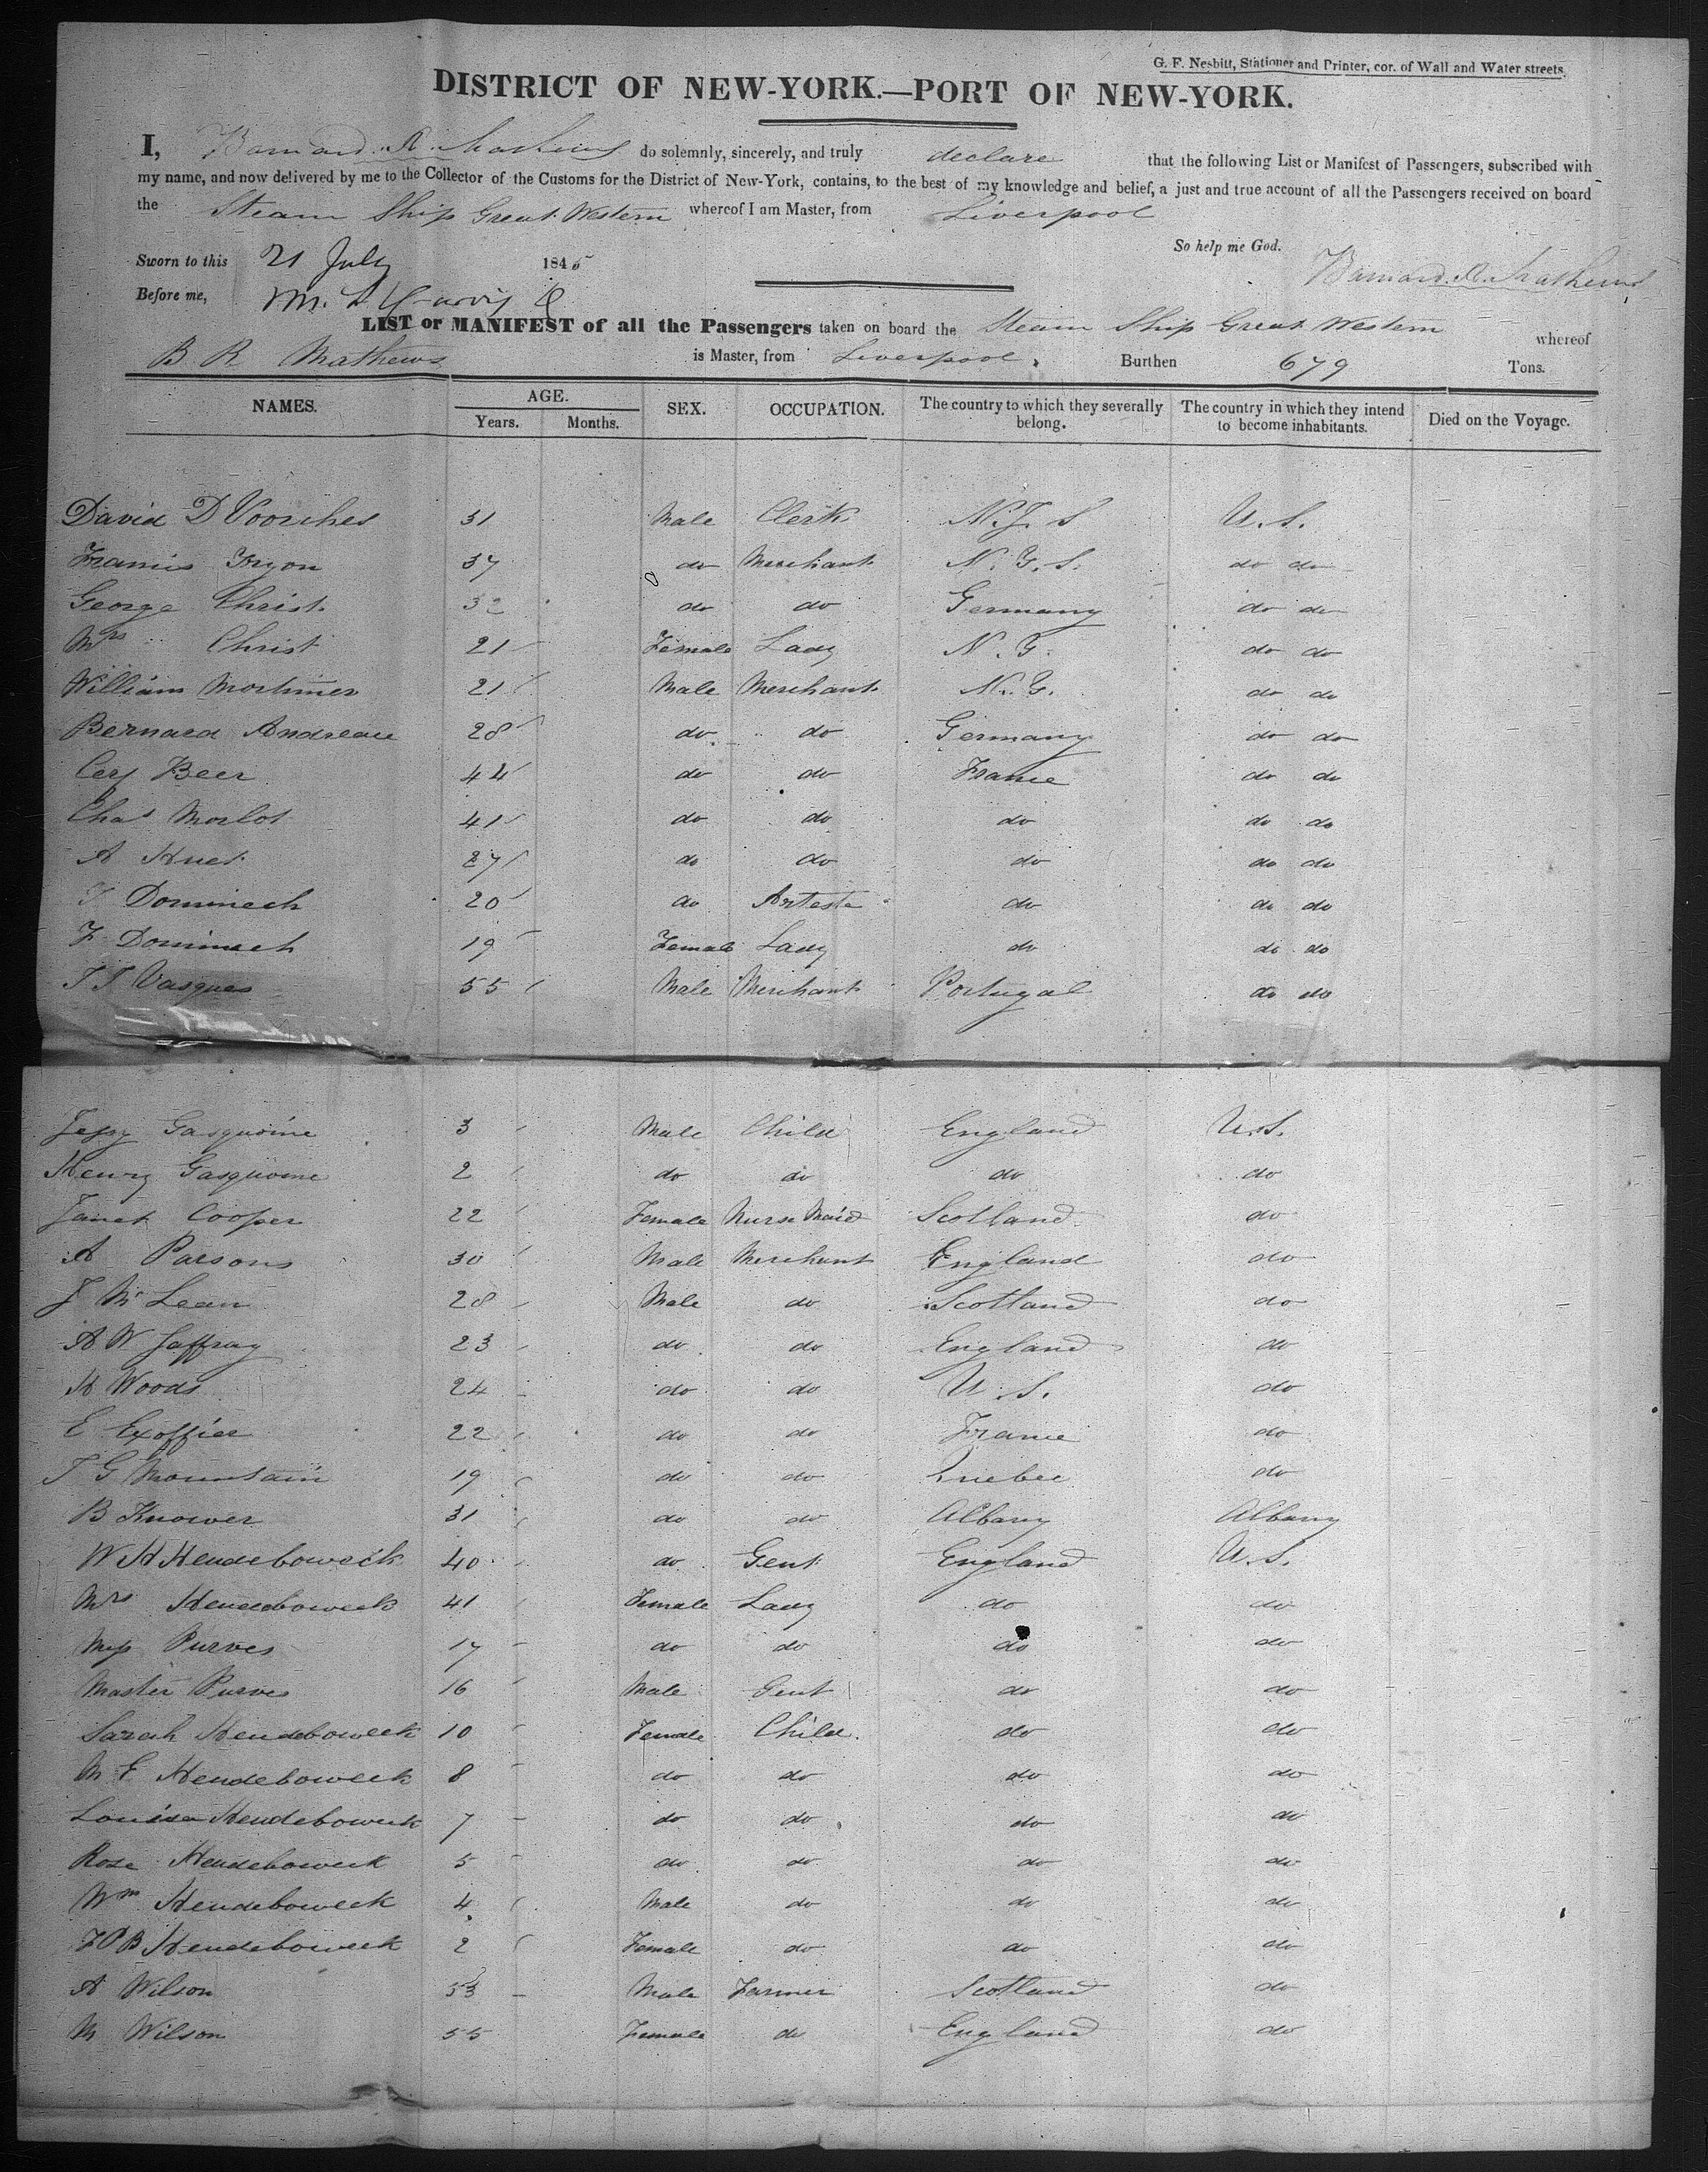 G. F. Nesbitt, Stationer and Printer, cor. of Wall and Water streets.
DISTRICT OF NEW-YORK.—PORT OF NEW-YORK.
I, Barnard. R. Mathews do solemnly, sincerely, and truly declare that the following List or Manifest of Passengers, subscribed with
my name, and now delivered by me to the Collector of the Customs for the District of New-York, contains, to the best of my knowledge and belief, a just and true account of all the Passengers received on board
the Steam Ship Great Western whereof I am Master, from Liverpool
So help me God.
Sworn to this 21 July 1845
Barnard. R. Mathews
Before me,
LIST or MANIFEST of all the Passengers taken on board the Steam Ship Great Western whereof
B R Mathews is Master, from Liverpool. Burthen 679 Tons.
NAMES. AGE. Years. Months. SEX. OCCUPATION. The country to which they severally belong. The country in which they intend to become inhabitants. Died on the Voyage.
David D Voorhes 31 Male Clerk U.S.
Francis Tryon 37 do Merchant do do
George Christ 32 do do Germany do do
Mrs Christ 21 Female Lady do do
William Mortimer 21 Male Merchant do do
Bernard Andreae 28 do do Germany do do
Cerf Beer 44 do do France do do
Chas Morlot 41 do do do do do
A Huet 27 do do do do do
Dominech 20 do Arteste do do do
F Dominech 19 Female Lady do do do
Vasques 55 Male Merchant Portugal do do
Jessy Gasquoine 3 Male Child England U.S.
Henry Gasquoine 2 do do do do
Janet Cooper 22 Female Nurse Maid Scotland do
A Parsons 30 Male Merchant England do
J McLean 28 Male do Scotland do
A W Jaffray 23 do do England do
H Woods 24 do do U.S. do
E Exoffier 22 do do France do
J G Mountain 19 do do Quebec do
B Knower 31 do do Albany Albany
W H Hendeboweck 40 do Gent England U.S.
Mrs Hendeboweck 41 Female Lady do do
Miss Purves 17 do do do do
Master Purves 16 Male Gent do do
Sarah Hendeboweck 10 Female Child do do
M E Hendeboweck 8 do do do do
Louisa Hendeboweck 7 do do do do
Rose Hendeboweck 5 do do do do
Wm Hendeboweck 4 Male do do do
Hendeboweck 2 Female do do do
A Wilson 53 Male Farmer Scotland do
M Wilson 55 Female do England do